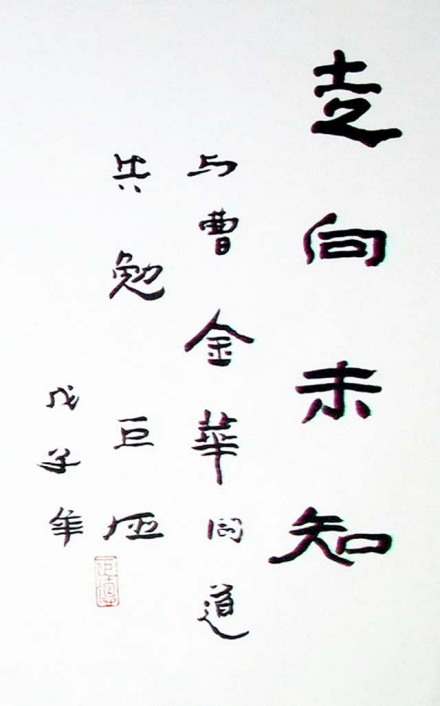 走向未知
与曹金華同道
共勉 巨
戊子年